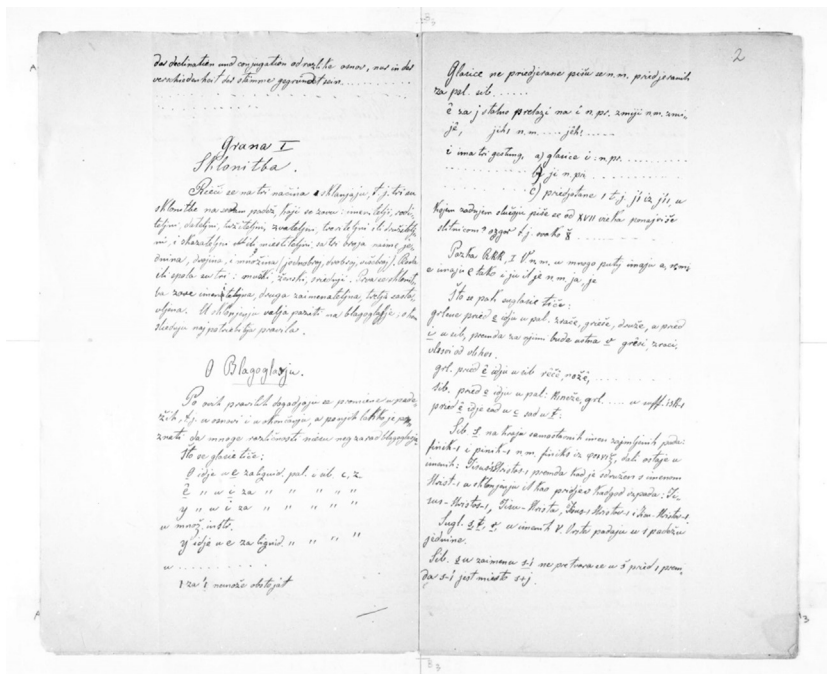 der declination und conjugation od razlike osnov, nur in der
verschiedenheit der stämme gegründet sein
Grana I
Sklonitba.
Rieči se na tri načina sklanjaju, t.j. tri su
sklonitbe na sedam padeži, koji se zovu: imenitelji, rodi-
teljni, dateljni, tužiteljni, zvateljni, tvoriteljni ili družitelj-
ni, i skazateljni ili mestiteljni; su tri broja naime je-
dnina, dvojina, i množina (jednobroj, dvobroj, višebroj). Roda
ili spola su tri: muški, ženski, srednji. Prva se skloni-
tba zove imeniteljna, druga zaimenateljna, tretja sasta-
vljena. U sklanjanju valja paziti na blagoglasje,
sleduju najpotrebitija pravila.
O Blagoglasju.
Po ovih pravilih dogadjaju se promiane u pade-
žih, t.j. u osnovi i u skončanju, a ponjih lahko je po-
znati da mnoge različnosti nisu neg zarad blagoglasja
Što se glasie tiče:
o idje u e zaliquid. pal. i sib. c, z
ě " u i za " " " "
y " u i za " " " "
u množ. instr.
y idje u e za liquid. " " " "
u
ı za 'ı nemože obstojat
2
Glasice ne priedjerane pišu se n.m. priedjeranih
za pal. sib.
ê za j stalno prelazi na i n.pr. zmiji n.m. zmi-
jê, jihı n.m. jêhı
i ima tri gestung, a) glasice i: n.pr.
b) je n.pr.
c) priedjetane ı t.j. jı iz jiı, u
kojem zadnjem slučaju piše se od XVII vieka ponajviše
slitnicom ozgor t.j. ovako
Pazka Akk. I V. n.m. u mnogo puti imaju a, osm.
e imaju ę tako i ju il je n.m. ja, ję
Što se pak suglasie tiče:
grlene pried e idju u pal. zvače, grieše, druže, a pried
i u sib, premda za njimi bude ustna v grěsi, zvaci,
vlasvi od vlhov.
grl. pried ê idju u sib rêcê, nozê,
sib. pried e idju u pal. kneže, grl. u suff. isk-ı
pried ê idje sad u c sad u t:
Sib. s na kraju samostavnih imen zajmljenih pada:
finik-ı i pinik-ı n.m. finiks iz φοινιξ, dali ostaje u
imenih: Isus-Hristos-ı premda kad je združeno s imenom
Hrist-ı u sklanjanju ilkao pridjev kadgod izpada: Isu-
rus-Hristos-ı, Isusu-Hrista, Isus-ı Hristov-ı i Isu-Hristov-ı.
Sugl. s, t, v, u imenih V. Vrste padaju u ı padežu
jednine.
Sib. s u zaimenu s-i ne pretvara se u š pried ı prem-
da s-i jest miesto s+j.